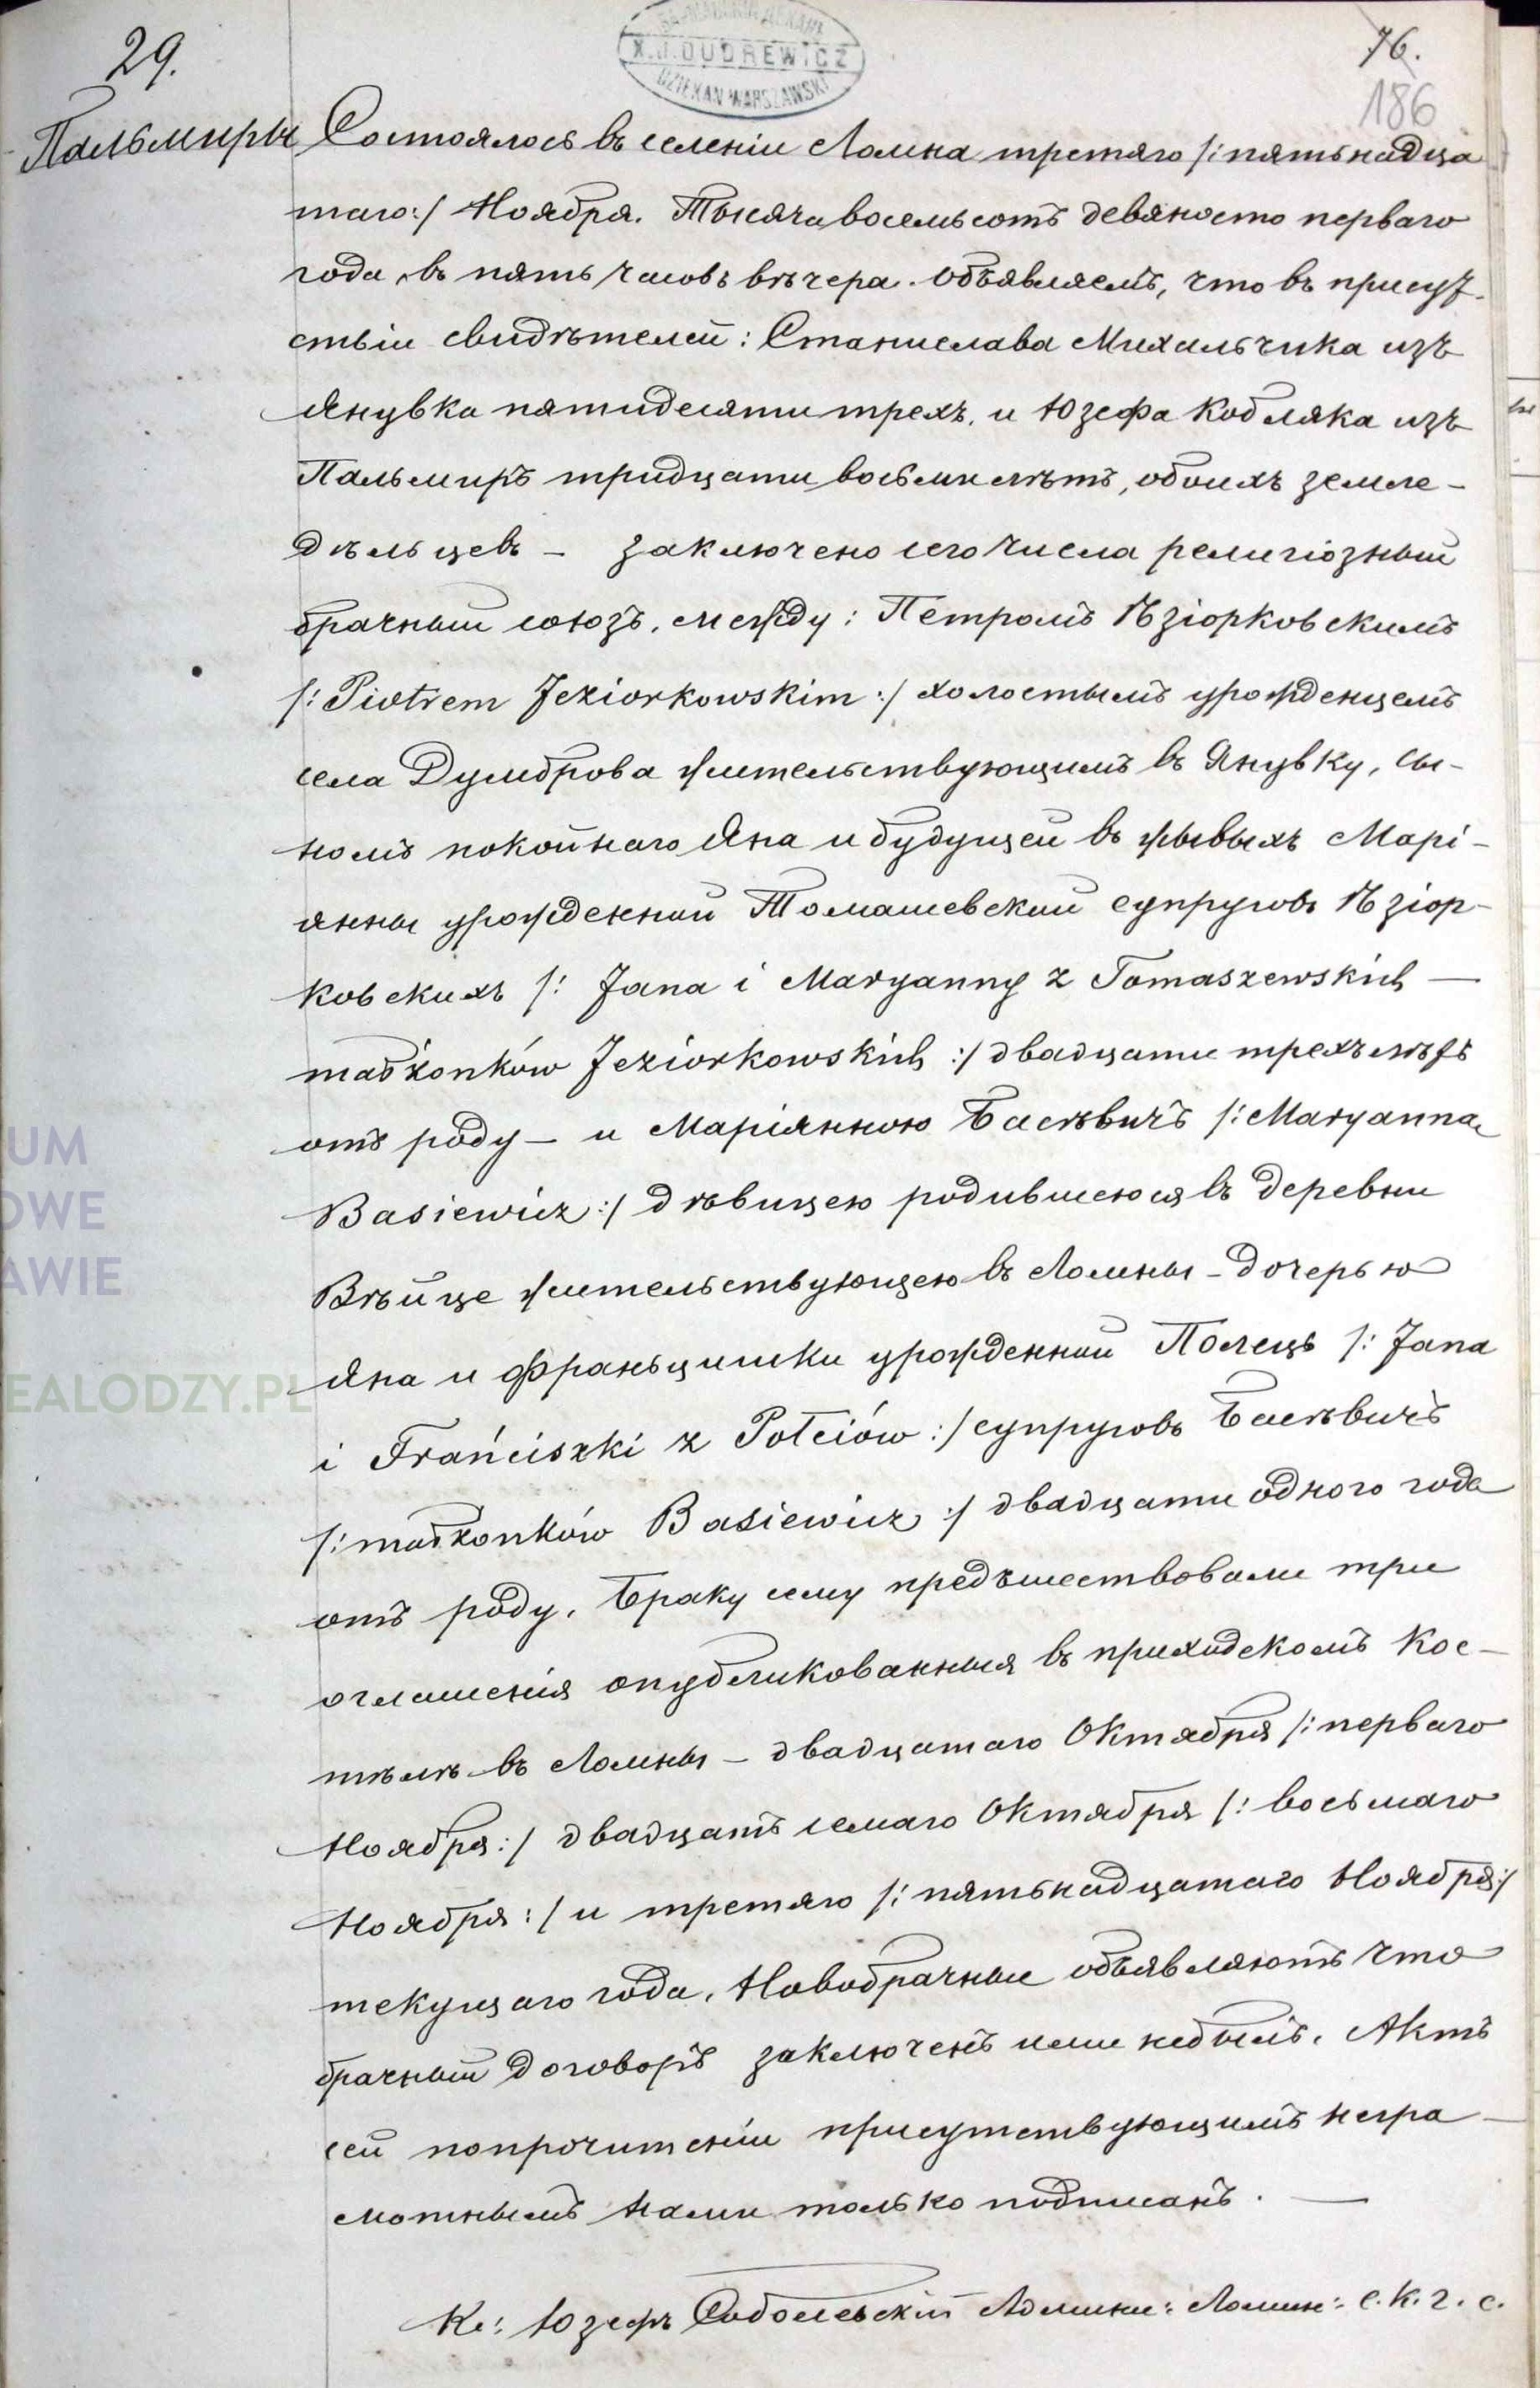 29.
76.
186
X.J. DUDREWICZ
DZIEKAN WARSZAWSKI
Пальмиры
Состоялось въ селеніи Ломна третяго /: пятьнадца
таго :/ Ноября. Тысяча восемьсотъ девяносто перваго
года, въ пять часовъ вѣчера. Объявляемъ, что въ присут-
ствіи свидѣтелей: Станислава Михальчика изъ
Янувка пятидесяти трехъ, и Юзефа Кобляка изъ
Пальмиръ тридцати восьми лѣтъ, обоихъ земле-
дѣльцевъ – заключено сего числа религіозный
брачный союзъ, между: Петромъ Ѣзіорковскимъ
/: Piotrem Jeziorkowskim :/ холостымъ урожденцемъ
села Думброва жительствующимъ въ Янувку, сы-
номъ покойнаго Яна и будущей въ жывыхъ Марі-
янны урожденной Томашевской супруговъ Ѣзіор-
ковскихъ /: Jana i Maryanny z Tomaszewskich —
małżonków Jeziorkowskich :/ двадцати трехъ лѣтъ
отъ роду – и Маріянною Басѣвичъ /: Maryanną
Basiewicz :/ дѣвицею родившеюся въ деревни
Вѣйце жительствующею въ Ломны – дочерью
Яна и Франьцишки урожденной Полець /: Jana
i Frańciszki z Polciów :/ супруговъ Басѣвичъ
/: małżonków Basiewicz :/ двадцати одного года
отъ роду. Браку сему предъшествовали три
оглашенія опубликованныя въ приходскомъ Кос-
тѣлѣ въ Ломны – двадцатаго Октября /: перваго
Ноября :/ двадцать семаго Октября /: восьмаго
Ноября :/ и третяго /: пятьнадцатаго Ноября :/
текущаго года. Новобрачные объявляютъ что
брачный договоръ заключенъ ими небылъ. Актъ
сей попрочитеніи присутствующимъ негра-
мотнымъ Нами только подписанъ. —
Кс: Юзефъ Соболевскій Админи: Ломин: С. К. г. с.
UM
OWE
AWIE
EALODZY.PL